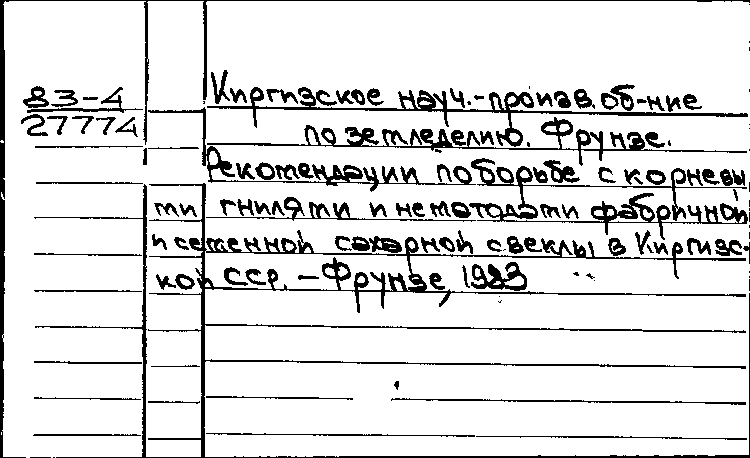 83-4
27774
Киргизское науч.-произв. об-ние
по земледелию. Фрунзе.
Рекомендации по борьбе с корневы
ми гнилями и нематодами фабричной
и семенной сахарной свеклы в Киргизс-
кой ССР. - Фрунзе, 1983